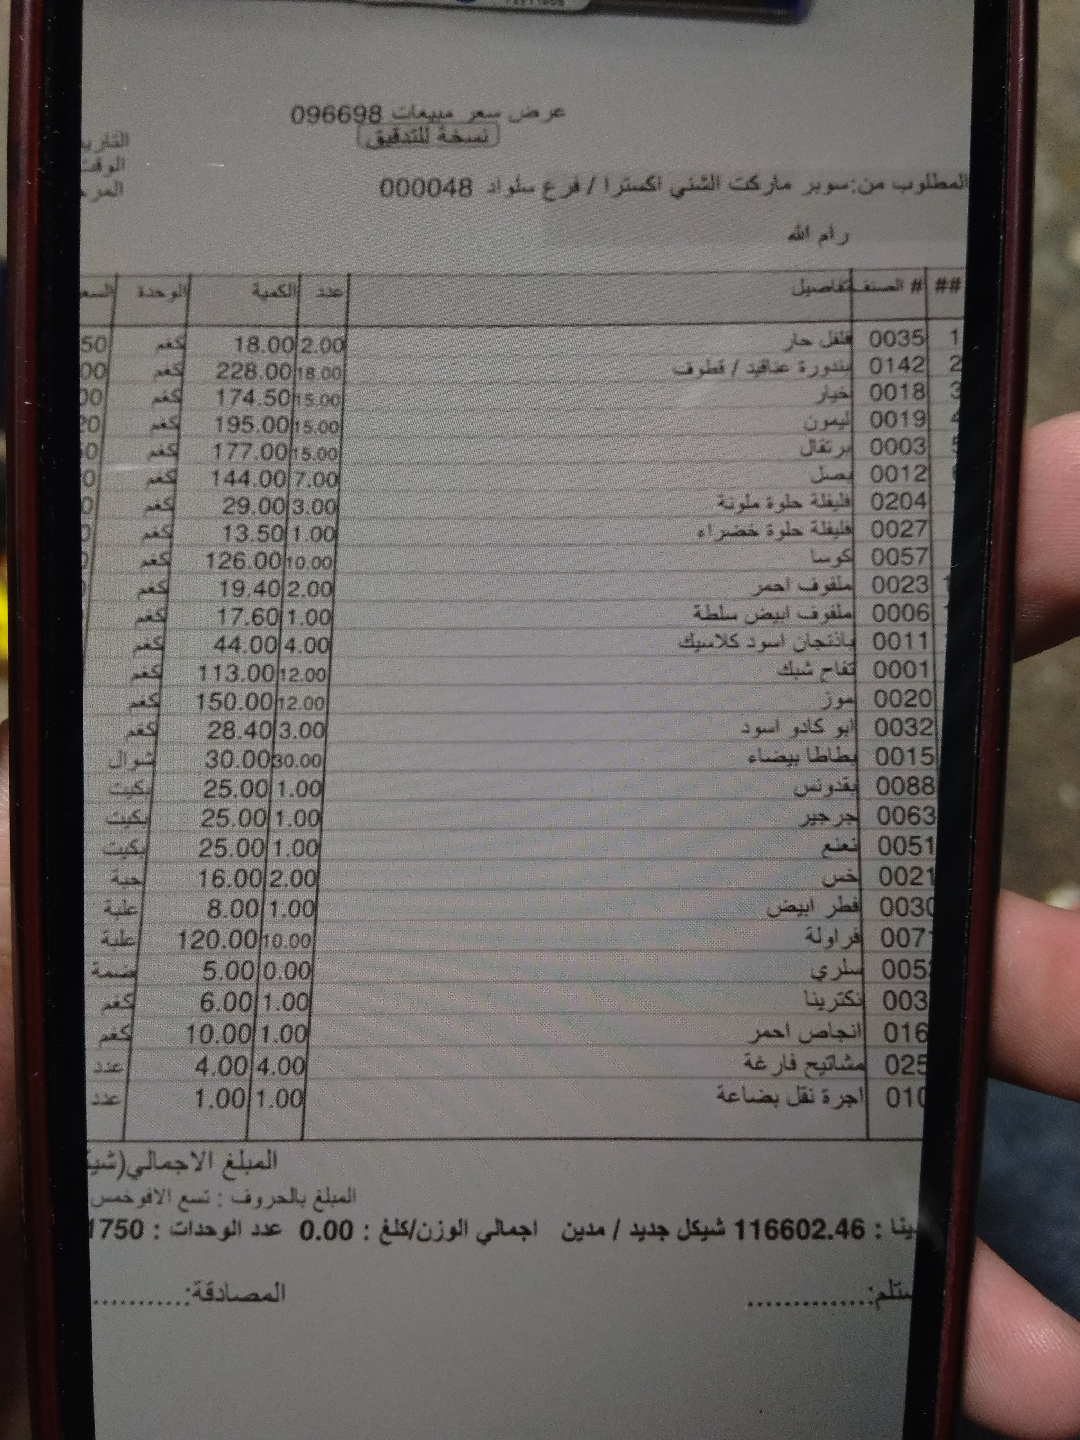 عرض سعر مبيعات 096698
نسخة للتدقيق
التاري
الوقت
المرج
المطلوب من:سوبر ماركت الشني اكسترا / فرع سلواد 000048
رام الله
## # الصنف تفاصيل عدد الكمية الوحدة السع
1 0035 فلفل حار 2.00 18.00 كغم 50
2 0142 بندورة عناقيد / قطوف 18.00 228.00 كغم 00
3 0018 خيار 15.00 174.50 كغم 00
4 0019 ليمون 15.00 195.00 كغم 20
0003 برتقال 15.00 177.00 كغم 0
0012 بصل 7.00 144.00 كغم 0
0204 فليفلة حلوة ملونة 3.00 29.00 كغم 0
0027 فليفلة حلوة خضراء 1.00 13.50 كغم
0057 كوسا 10.00 126.00 كغم
1 0023 ملفوف احمر 2.00 19.40 كغم
0006 ملفوف ابيض سلطة 1.00 17.60 كغم
0011 باذنجان اسود كلاسيك 4.00 44.00 كغم
0001 تفاح شبك 12.00 113.00 كغم
0020 موز 12.00 150.00 كغم
0032 ابو كادو اسود 3.00 28.40 كغم
0015 بطاطا بيضاء 30.00 30.00 شوال
0088 بقدونس 1.00 25.00 بكيت
0063 جرجير 1.00 25.00 بكيت
0051 نعنع 1.00 25.00 بكيت
0021 خس 2.00 16.00 حبة
0030 فطر ابيض 1.00 8.00 علبة
007 فراولة 10.00 120.00 علبة
005 سلري 0.00 5.00 ضمة
003 نكترينا 1.00 6.00 كغم
016 انجاص احمر 1.00 10.00 كغم
025 مشاتيح فارغة 4.00 4.00 عدد
010 اجرة نقل بضاعة 1.00 1.00 عدد
المبلغ الاجمالي(شيك
المبلغ بالحروف : تسع الافوخمس
ينا : 116602.46 شيكل جديد / مدين اجمالي الوزن/كلغ : 0.00 عدد الوحدات : 1750
ستلم:............... المصادقة:...........